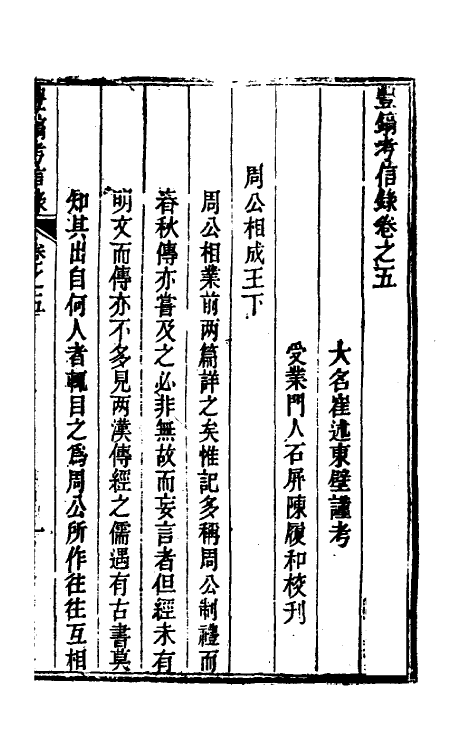 豐鎬考信錄卷之五
大名崔述東壁謹考
受業門人石屏陳履和校刋
周公相成王下
周公相業前两篇詳之矣惟記多稱周公制禮而
春秋傳亦嘗及之必非無故而妄言者但經未有
明文而傳亦不多見两漢傳經之儒遇有古書莫
知其出自何人者輒目之爲周公所作往往互相
豐鎬考信錄
卷之五
一